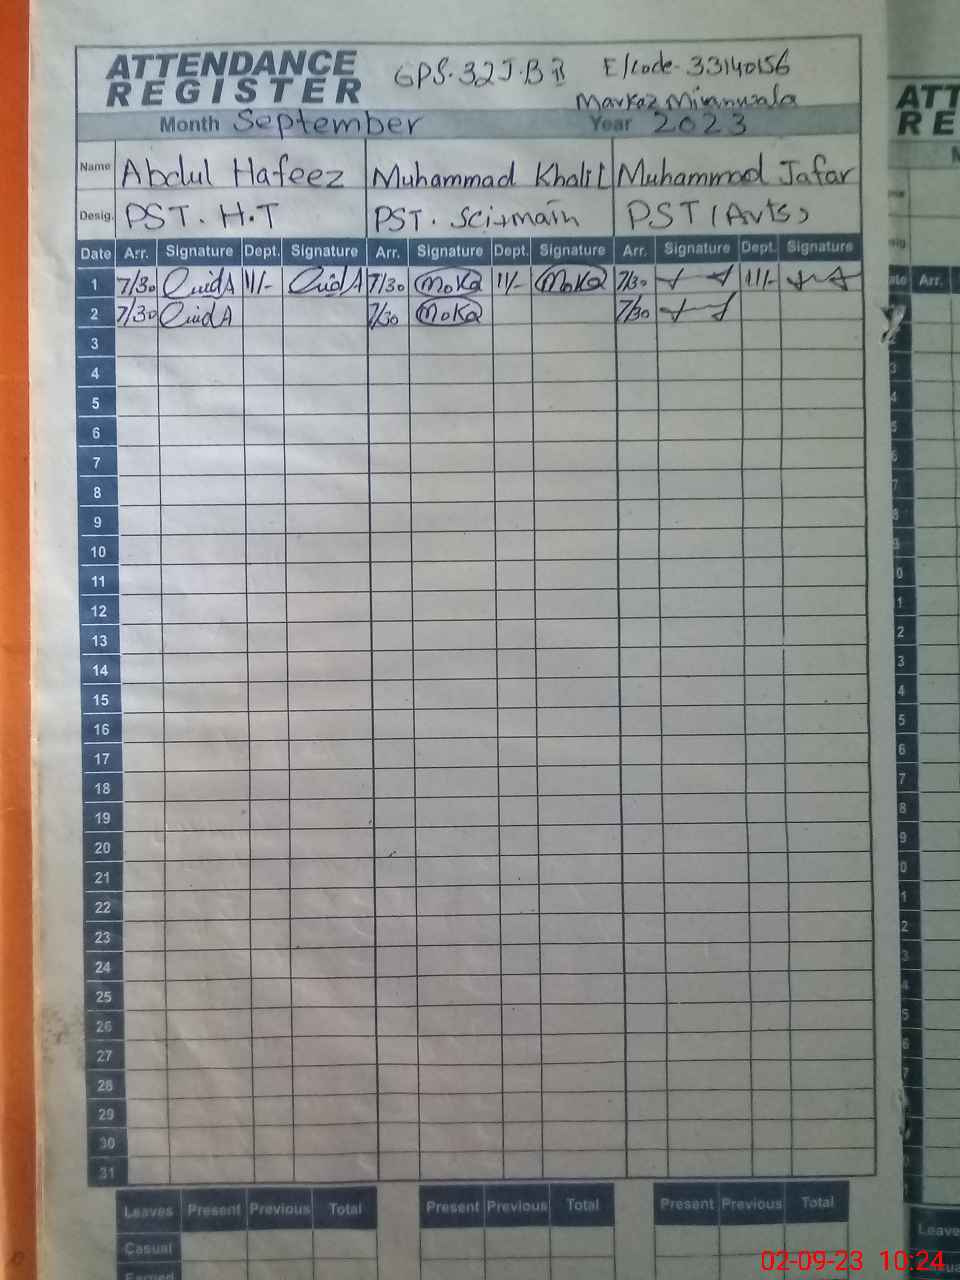 ATTENDANCE REGISTER
GPS. 32 J.B II E/Code- 33140156
Markaz Mianwala
Month September Year 2023
Name Abdul Hafeez Muhammad Khalil Muhammad Jafar
Desig. PST. H.T PST. Sci+math PST (Arts)
Date Arr. Signature Dept. Signature Arr. Signature Dept. Signature Arr. Signature Dept. Signature
1 7/30 11/- 7/30 11/- 7/30 11/-
2 7/30 7/30 7/30
3
4
5
6
7
8
9
10
11
12
13
14
15
16
17
18
19
20
21
22
23
24
25
26
27
28
29
30
31
Leaves Present Previous Total Present Previous Total Present Previous Total
Casual
Earned
02-09-23 10:24